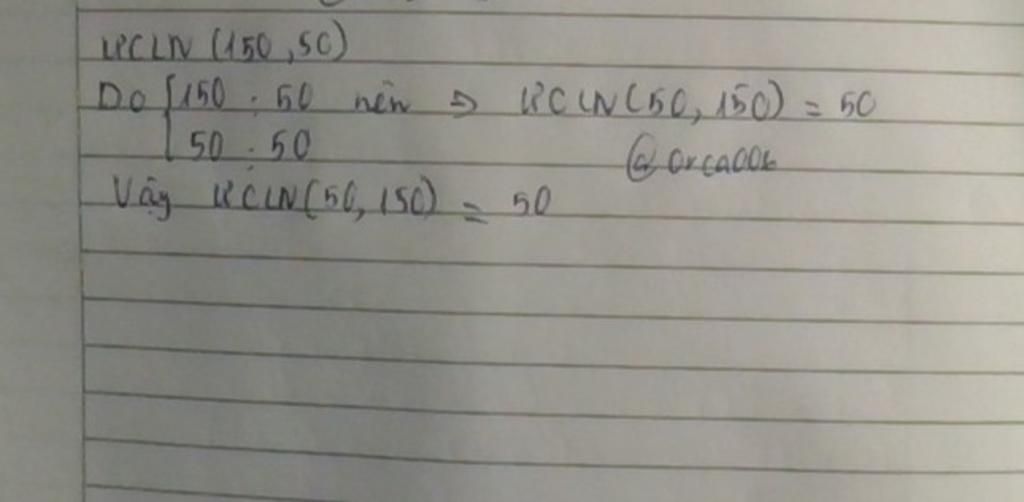 ƯCLN (150, 50)
Do { 150 ⋮ 50 nên ⇒ ƯCLN(50, 150) = 50
50 ⋮ 50
@orca006
Vậy ƯCLN(50, 150) = 50